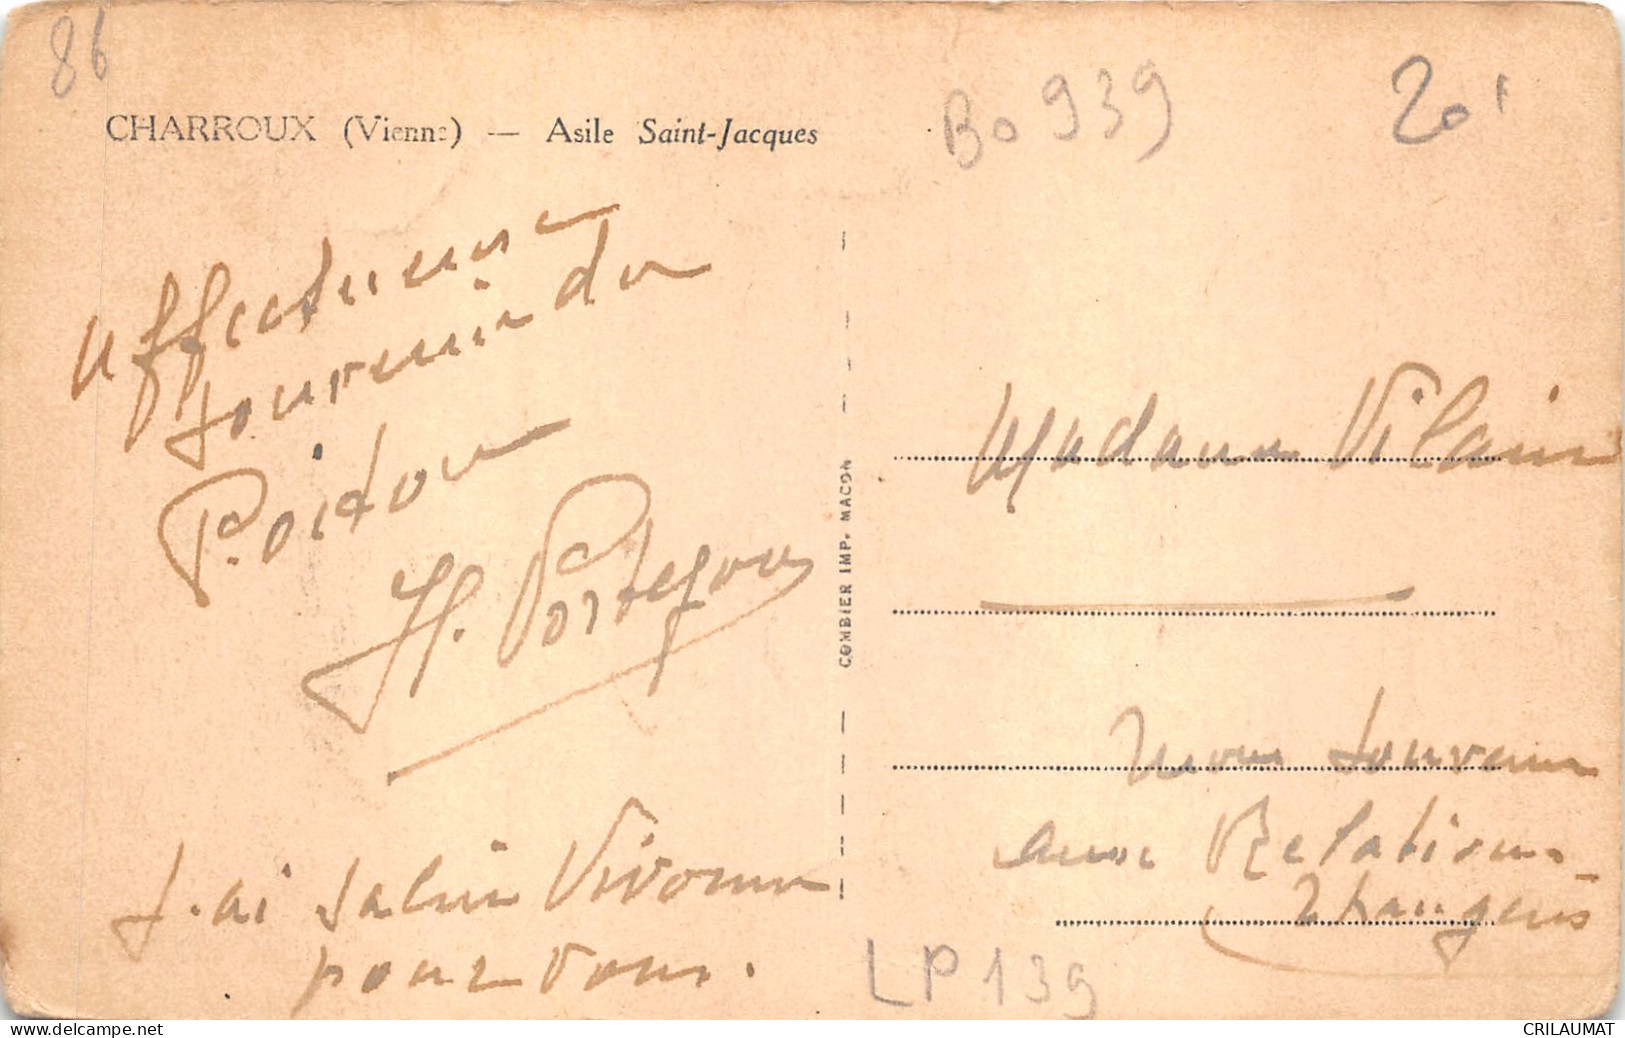 86
CHARROUX (Vienne) — Asile Saint-Jacques
Bo 939
20
Affectueux
souvenir du
Poitou
H. Portejoux
J'ai salué Vivonne
pour vous.
COMBIER IMP. MACON
Madame Vilain
souvenir
aux Relations
LP 139
CRILAUMAT
www.delcampe.net